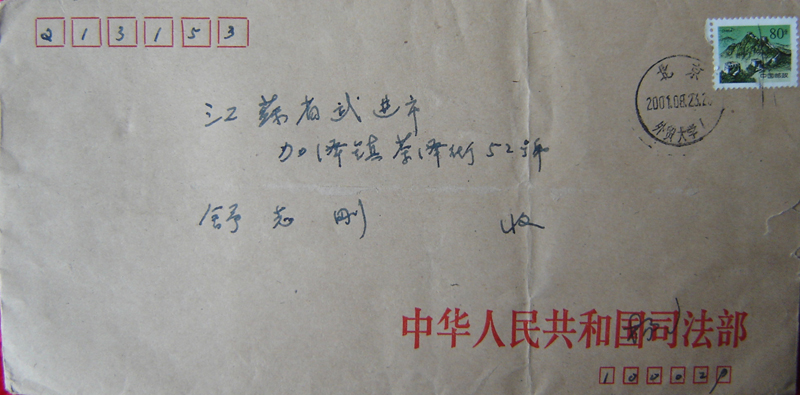 213153
80分
中国邮政
北京
2001.08.23.2
外贸大学1
江苏省武进市
加泽镇 泽街52号
舒志刚 收
中华人民共和国司法部
100029